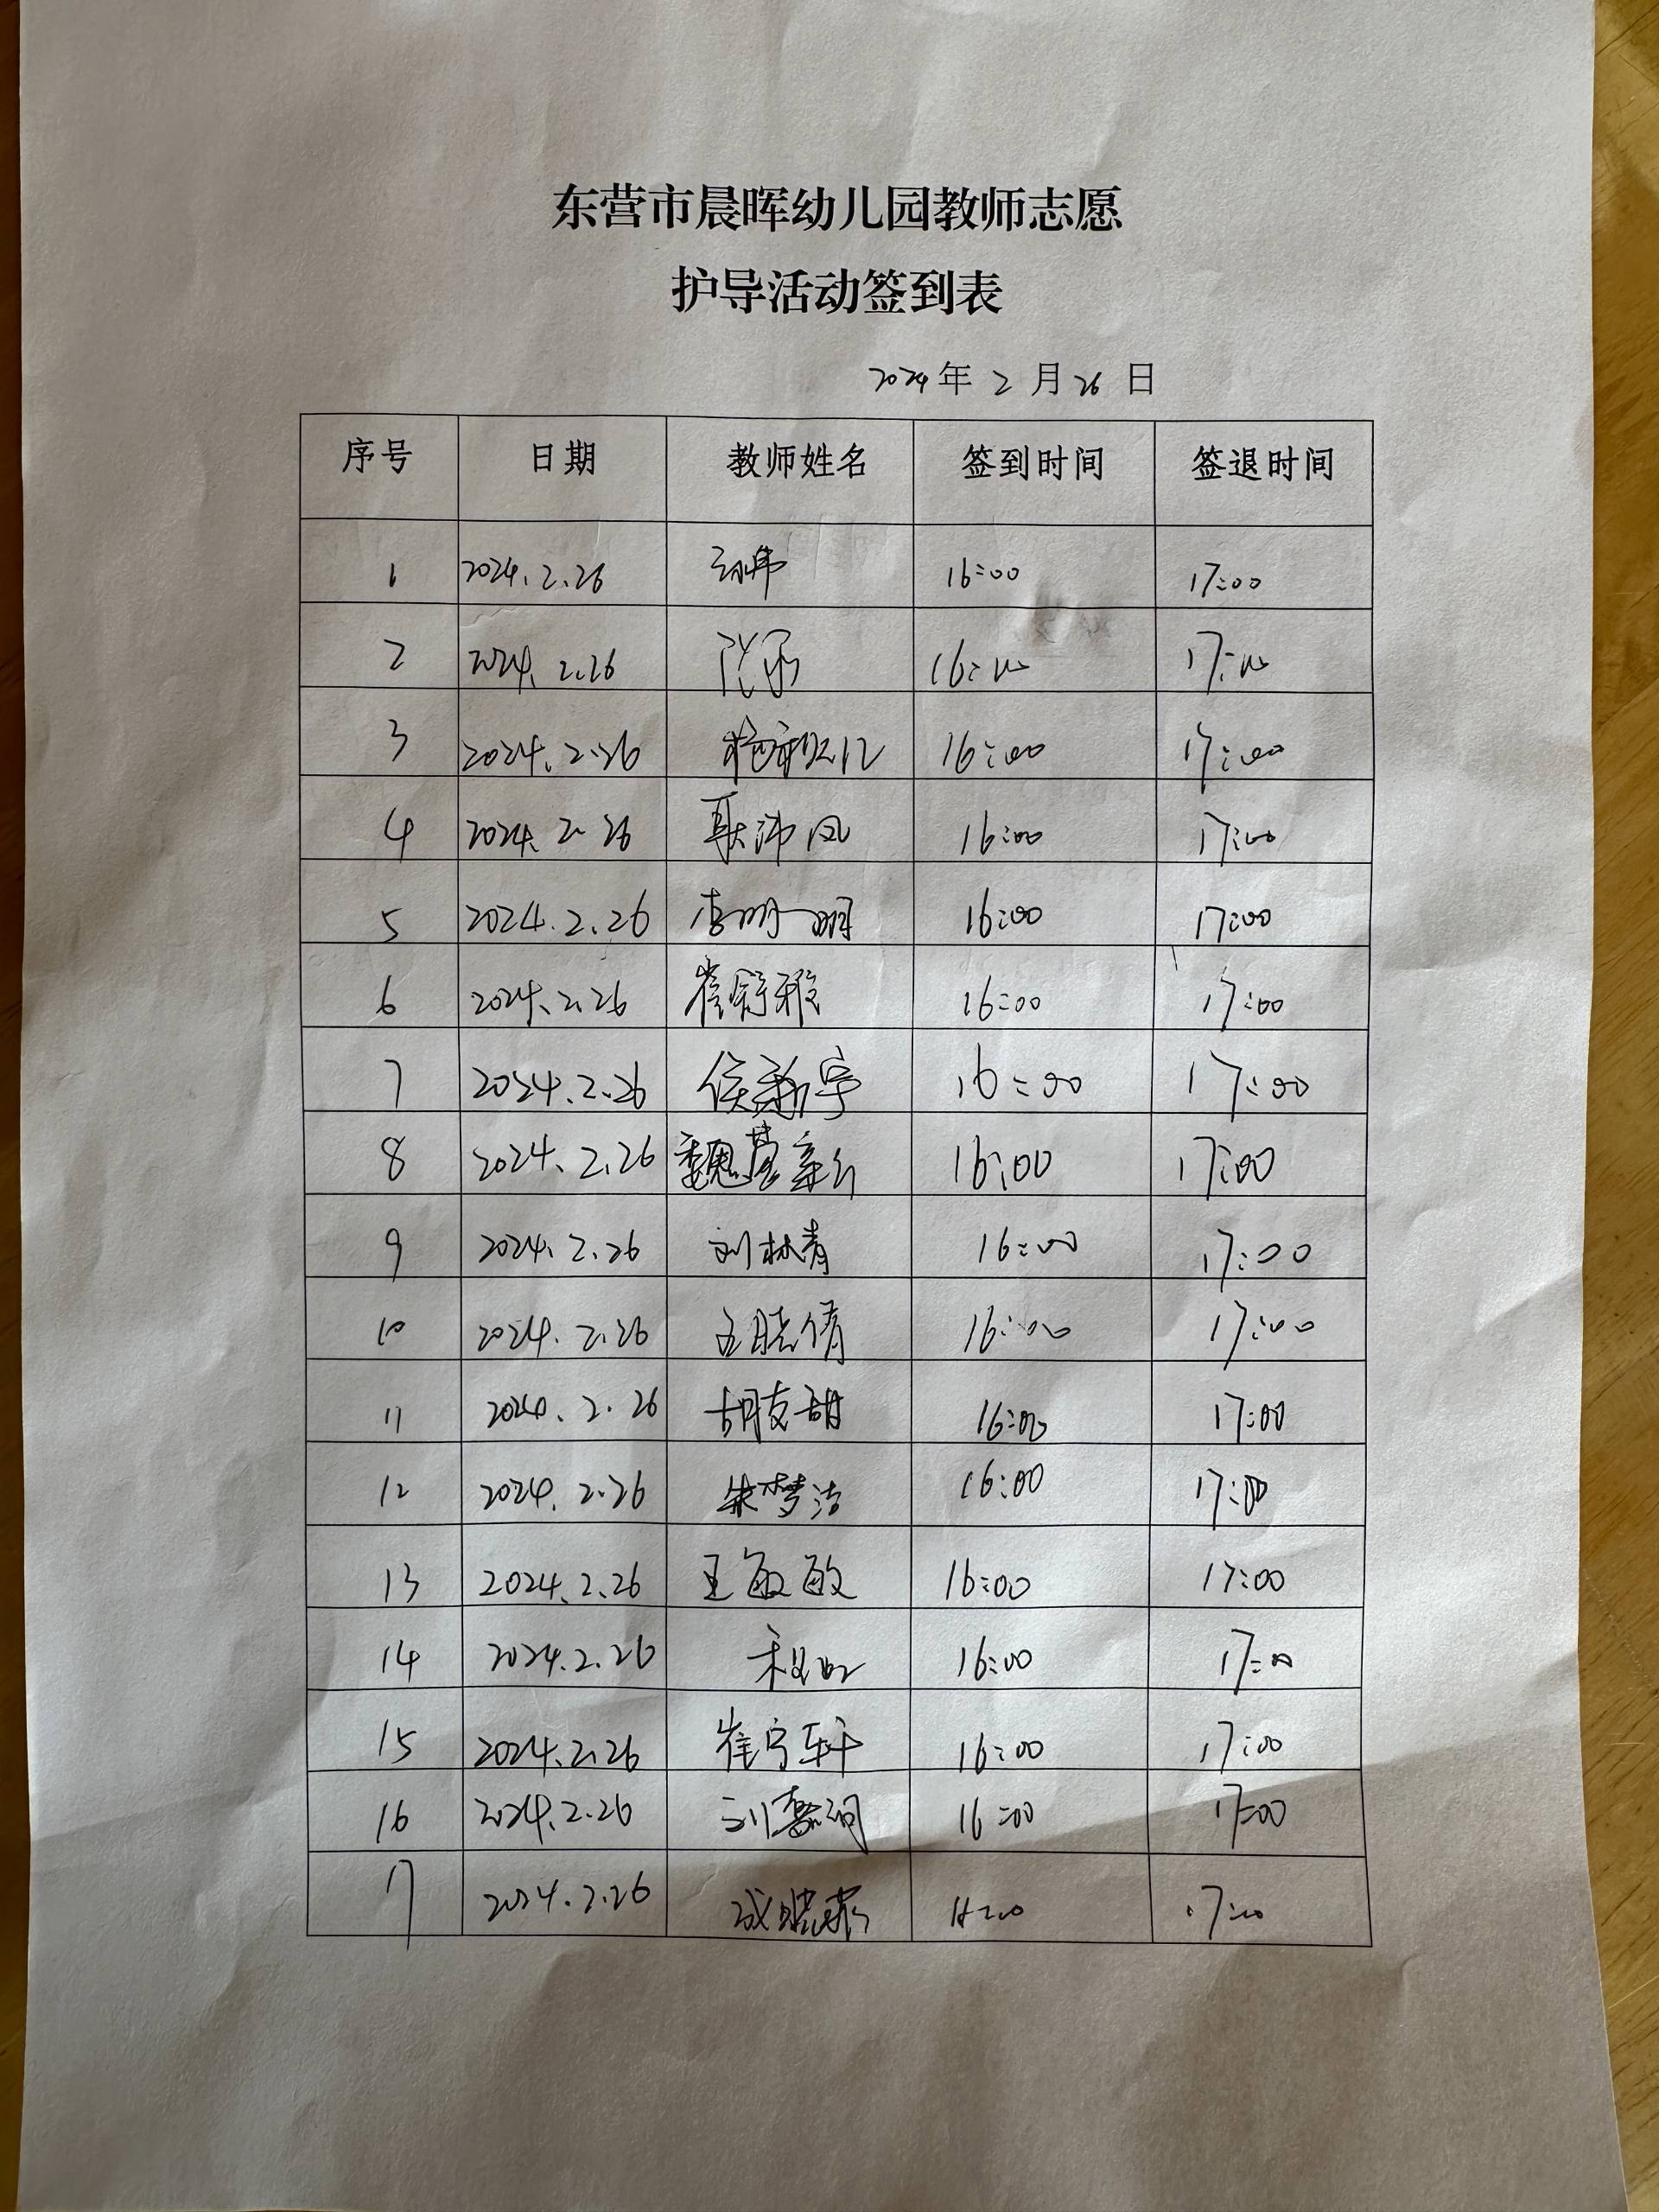 东营市晨晖幼儿园教师志愿
护导活动签到表
2024年 2 月 26 日
序号 日期 教师姓名 签到时间 签退时间
1 2024.2.26 16:00 17:00
2 2024.2.26 16:00 17:00
3 2024.2.26 16:00 17:00
4 2024.2.26 16:00 17:00
5 2024.2.26 李明明 16:00 17:00
6 2024.2.26 崔舒雅 16:00 17:00
7 2024.2.26 侯新宇 16:00 17:00
8 2024.2.26 16:00 17:00
9 2024.2.26 刘林青 16:00 17:00
10 2024.2.26 王晓倩 16:00 17:00
11 2024.2.26 胡友甜 16:00 17:00
12 2024.2.26 朱梦洁 16:00 17:00
13 2024.2.26 王敏敏 16:00 17:00
14 2024.2.26 16:00 17:00
15 2024.2.26 崔宁轩 16:00 17:00
16 2024.2.26 16:00 17:00
17 2024.2.26 17:00